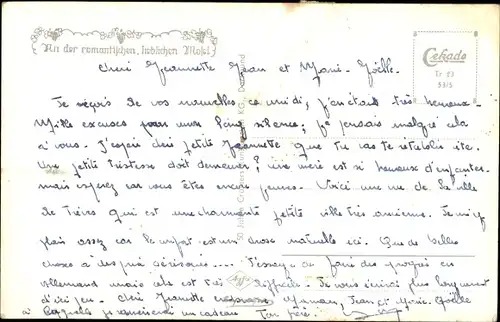 An der romantischen, lieblichen Mosel
Cekade
Tr 53
5375
Cheri Jeannette Jean et Marie-Joëlle.
Je reçois de vos nouvelles ce midi, j'en étais très heureux
Mille excuses pour mon long silence, je pensais malgré cela
à vous. J'espère ma petite Jeannette que tu vas te rétablir vite.
Une petite tristesse doit demeurer? une mère est si heureuse d'enfanter
mais espérez car vous êtes encore jeunes. Voici une vue de la ville
de Trèves qui est une charmante petite ville très ancienne. Je m'y
plais assez car le confort est une chose naturelle ici. Que de belles
choses à des prix dérisoires... J'essaye de faire des progrès en
allemand mais cela est très difficile. Je vous écrirai plus longuement
d'ici peu. Cheri Jeannette Maman, Jean et Marie-Joëlle
à laquelle je un cadeau Ton frère.